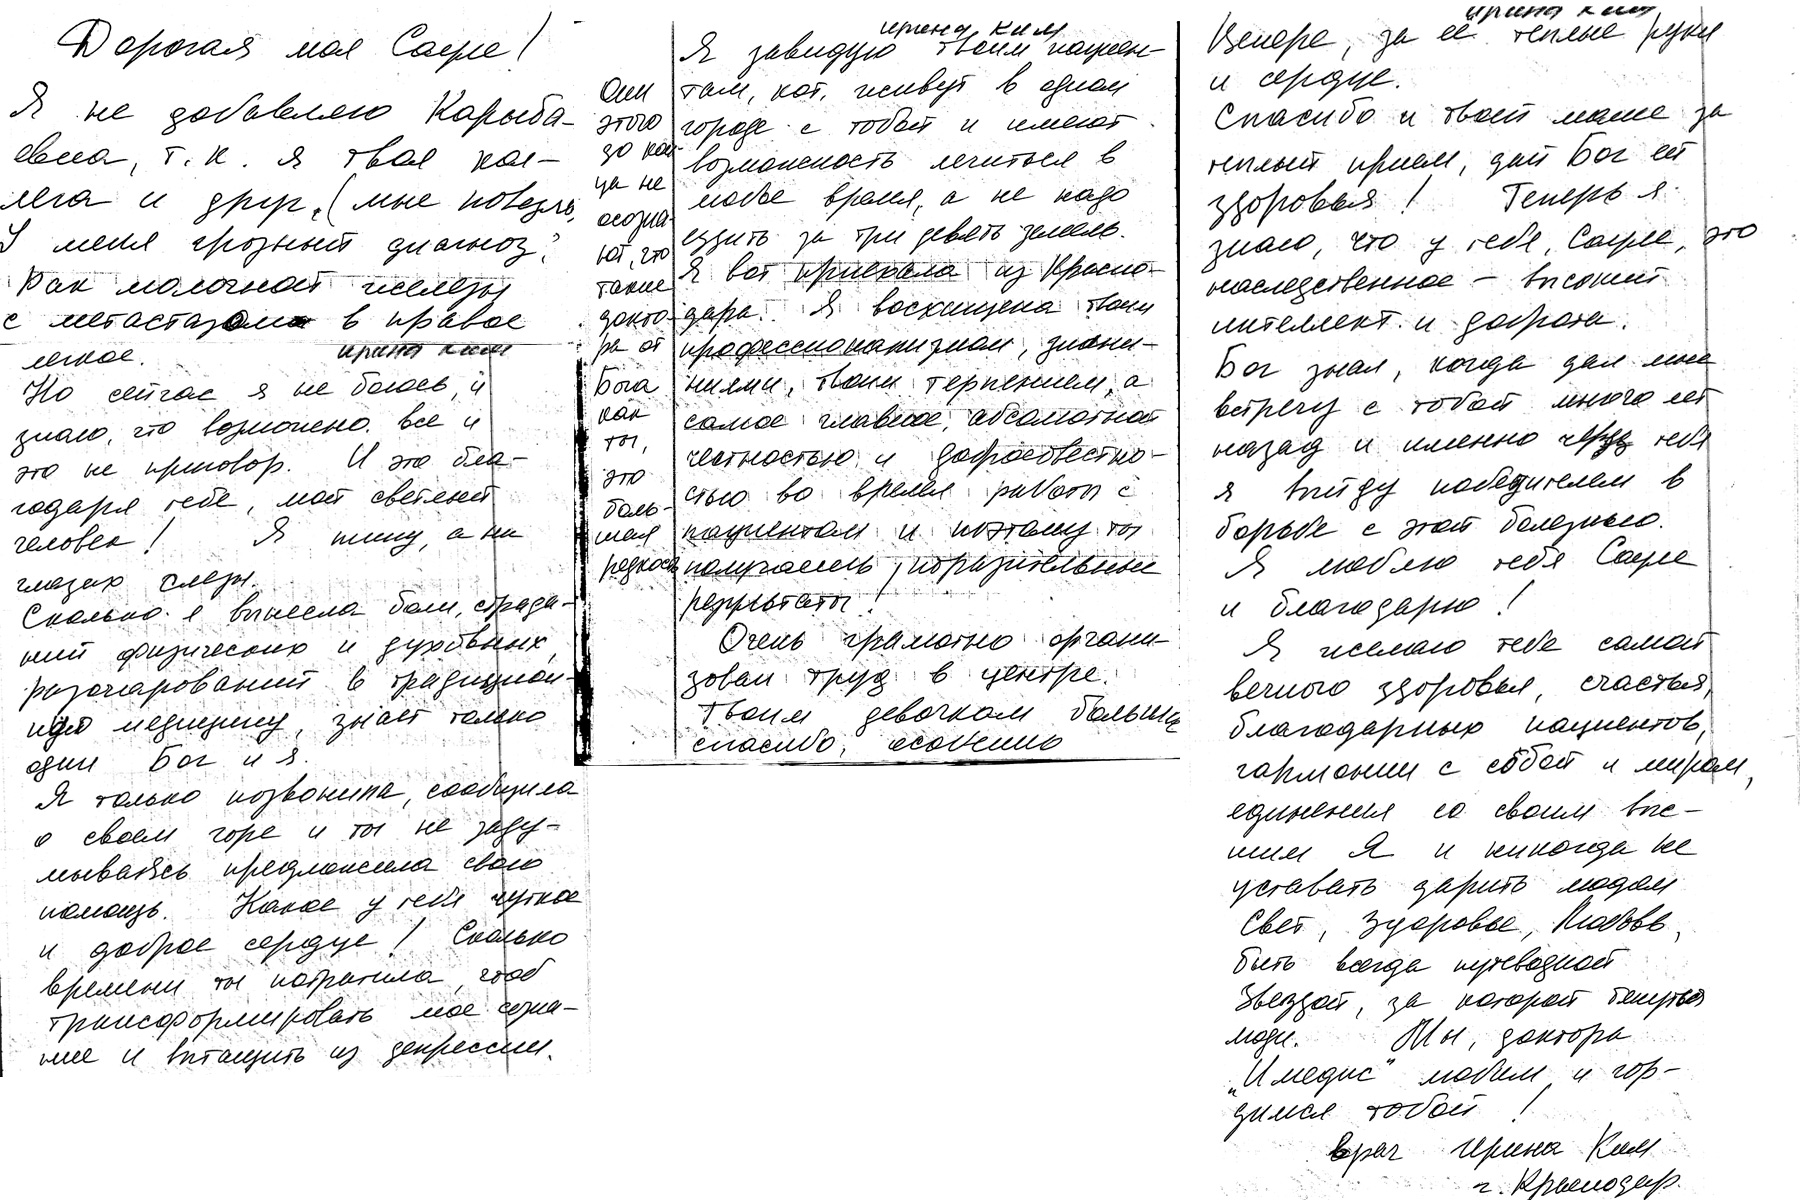 Дорогая моя Сауле!
Я не добавляю Карыба-
евна, т.к. я твоя кол-
лега и друг, (мне повезло,
У меня грозный диагноз:
Рак молочной железы
с метастазами в правое
легкое.
Ирина Ким
Но сейчас я не боюсь, и
знаю, что возможно все и
это не приговор. И это бла-
годаря тебе, мой светлый
человек! Я пишу, а на
глазах слезы.
Сколько я вынесла боли, страда-
ний физических и духовных,
разочарований в традицион-
ную медицину, знает только
один Бог и я.
Я только позвонила, сообщила
о своем горе и ты не заду-
мываясь предложила свою
помощь. Какое у тебя чуткое
и доброе сердце! Сколько
времени ты потратила, чтоб
трансформировать мое созна-
ние и вытащить из депрессии.
Ирина Ким
Я завидую твоим пациен-
там, кот. живут в одном
городе с тобой и имеют
возможность лечиться в
любое время, а не надо
ездить за три девять земель.
Я вот приехала из Красно-
дара. Я восхищена твоим
профессионализмом, знани-
ниями, твоим терпением, а
самое главное, абсолютной
честностью и добросовестно-
стью во время работы с
пациентом и поэтому ты
получаешь поразительные
результаты!
Очень грамотно органи-
зован труд в центре.
Твоим девочкам большое
спасибо, особенно
Они
этого
до кон
ца не
осозна-
ют, что
такие
докто-
ра от
Бога
как
ты,
это
боль-
шая
редкость
Ирина Ким
Венере, за её теплые руки
и сердце.
Спасибо и твоей маме за
теплый прием, дай Бог ей
здоровья! Теперь я
знаю, что у тебя, Сауле, это
наследственное – высокий
интеллект и доброта.
Бог знал, когда дал мне
встречу с тобой много лет
назад и именно через тебя
я выйду победителем в
борьбе с этой болезнью.
Я люблю тебя Сауле
и благодарю!
Я желаю тебе самой
вечного здоровья, счастья,
благодарных пациентов,
гармонии с собой и миром,
единения со своим выс-
шим Я и никогда не
уставать дарить людям
Свет, Здоровье, Любовь,
быть всегда путеводной
Звездой, за которой тянутся
люди. Мы, доктора
„Имедис" любим и гор-
димся тобой!
Врач Ирина Ким
г. Краснодар.